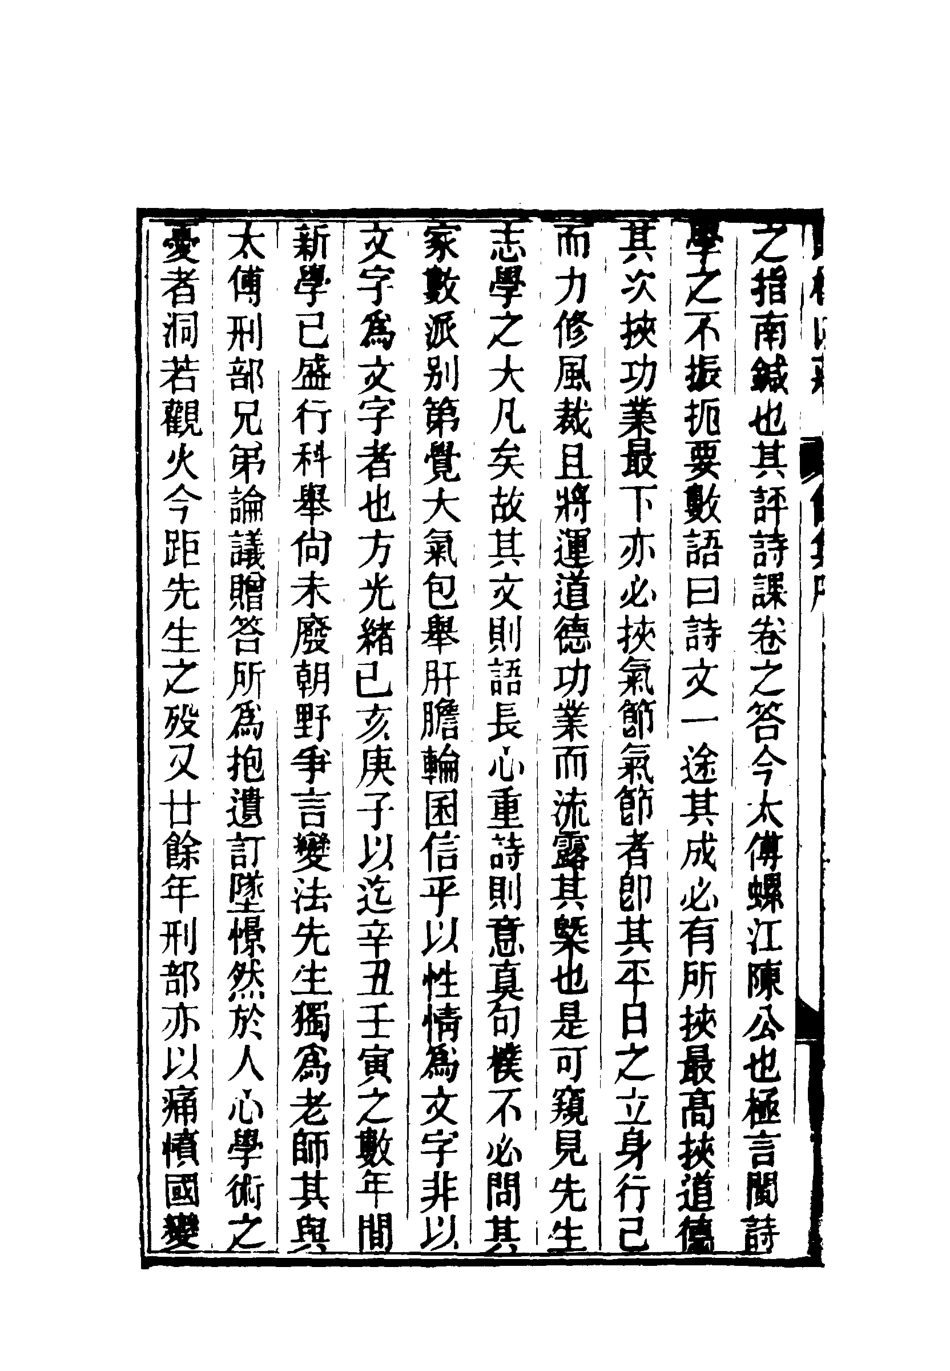 之指南鍼也其評詩課卷之答今太傅螺江陳公也極言閩詩
學之不振扼要數語曰詩文一途其成必有所挾最高挾道德
其次挾功業最下亦必挾氣節氣節者卽其平日之立身行己
而力修風裁且將運道德功業而流露其槩也是可窺見先生
志學之大凡矣故其文則語長心重詩則意真句樸不必問其
家數派别第覺大氣包舉肝膽輪囷信乎以性情爲文字非以
文字爲文字者也方光緒己亥庚子以迄辛丑壬寅之數年間
新學已盛行科舉尙未廢朝野爭言變法先生獨爲老師其與
太傅刑部兄弟論議贈答所爲抱遺訂墜憬然於人心學術之
憂者洞若觀火今距先生之歿又廿餘年刑部亦以痛憤國變